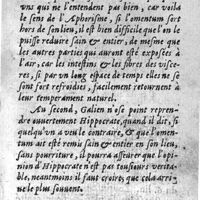 vns qui ne l'entendent pas bien, car voila
le sens de l'Aphorisme, si l'omentum sort
hors de son lieu, il est bien difficile que l'on le
puisse reduire sain & entier, de mesme que
les autres parties qui auront esté exposées à
l'air, car les intestins & les fibres des visce-
res, si par vn long espace de temps elles ne se
sont fort refroidies, facilement retournent à
leur temperament naturel.
Au second, Galien n'ose point repren-
dre ouuertement Hippocrate, quand il dit, si
quelqu'vn a veu le contraire, & que l'omen-
tum ait esté remis sain & entier en son lieu,
sans pourriture, il pourra asseurer que l'opi-
nion d'Hippocrate n'est pas tousiours verita-
ble, neantmoins il faut croire, que cela arri-
ue le plus souuent.